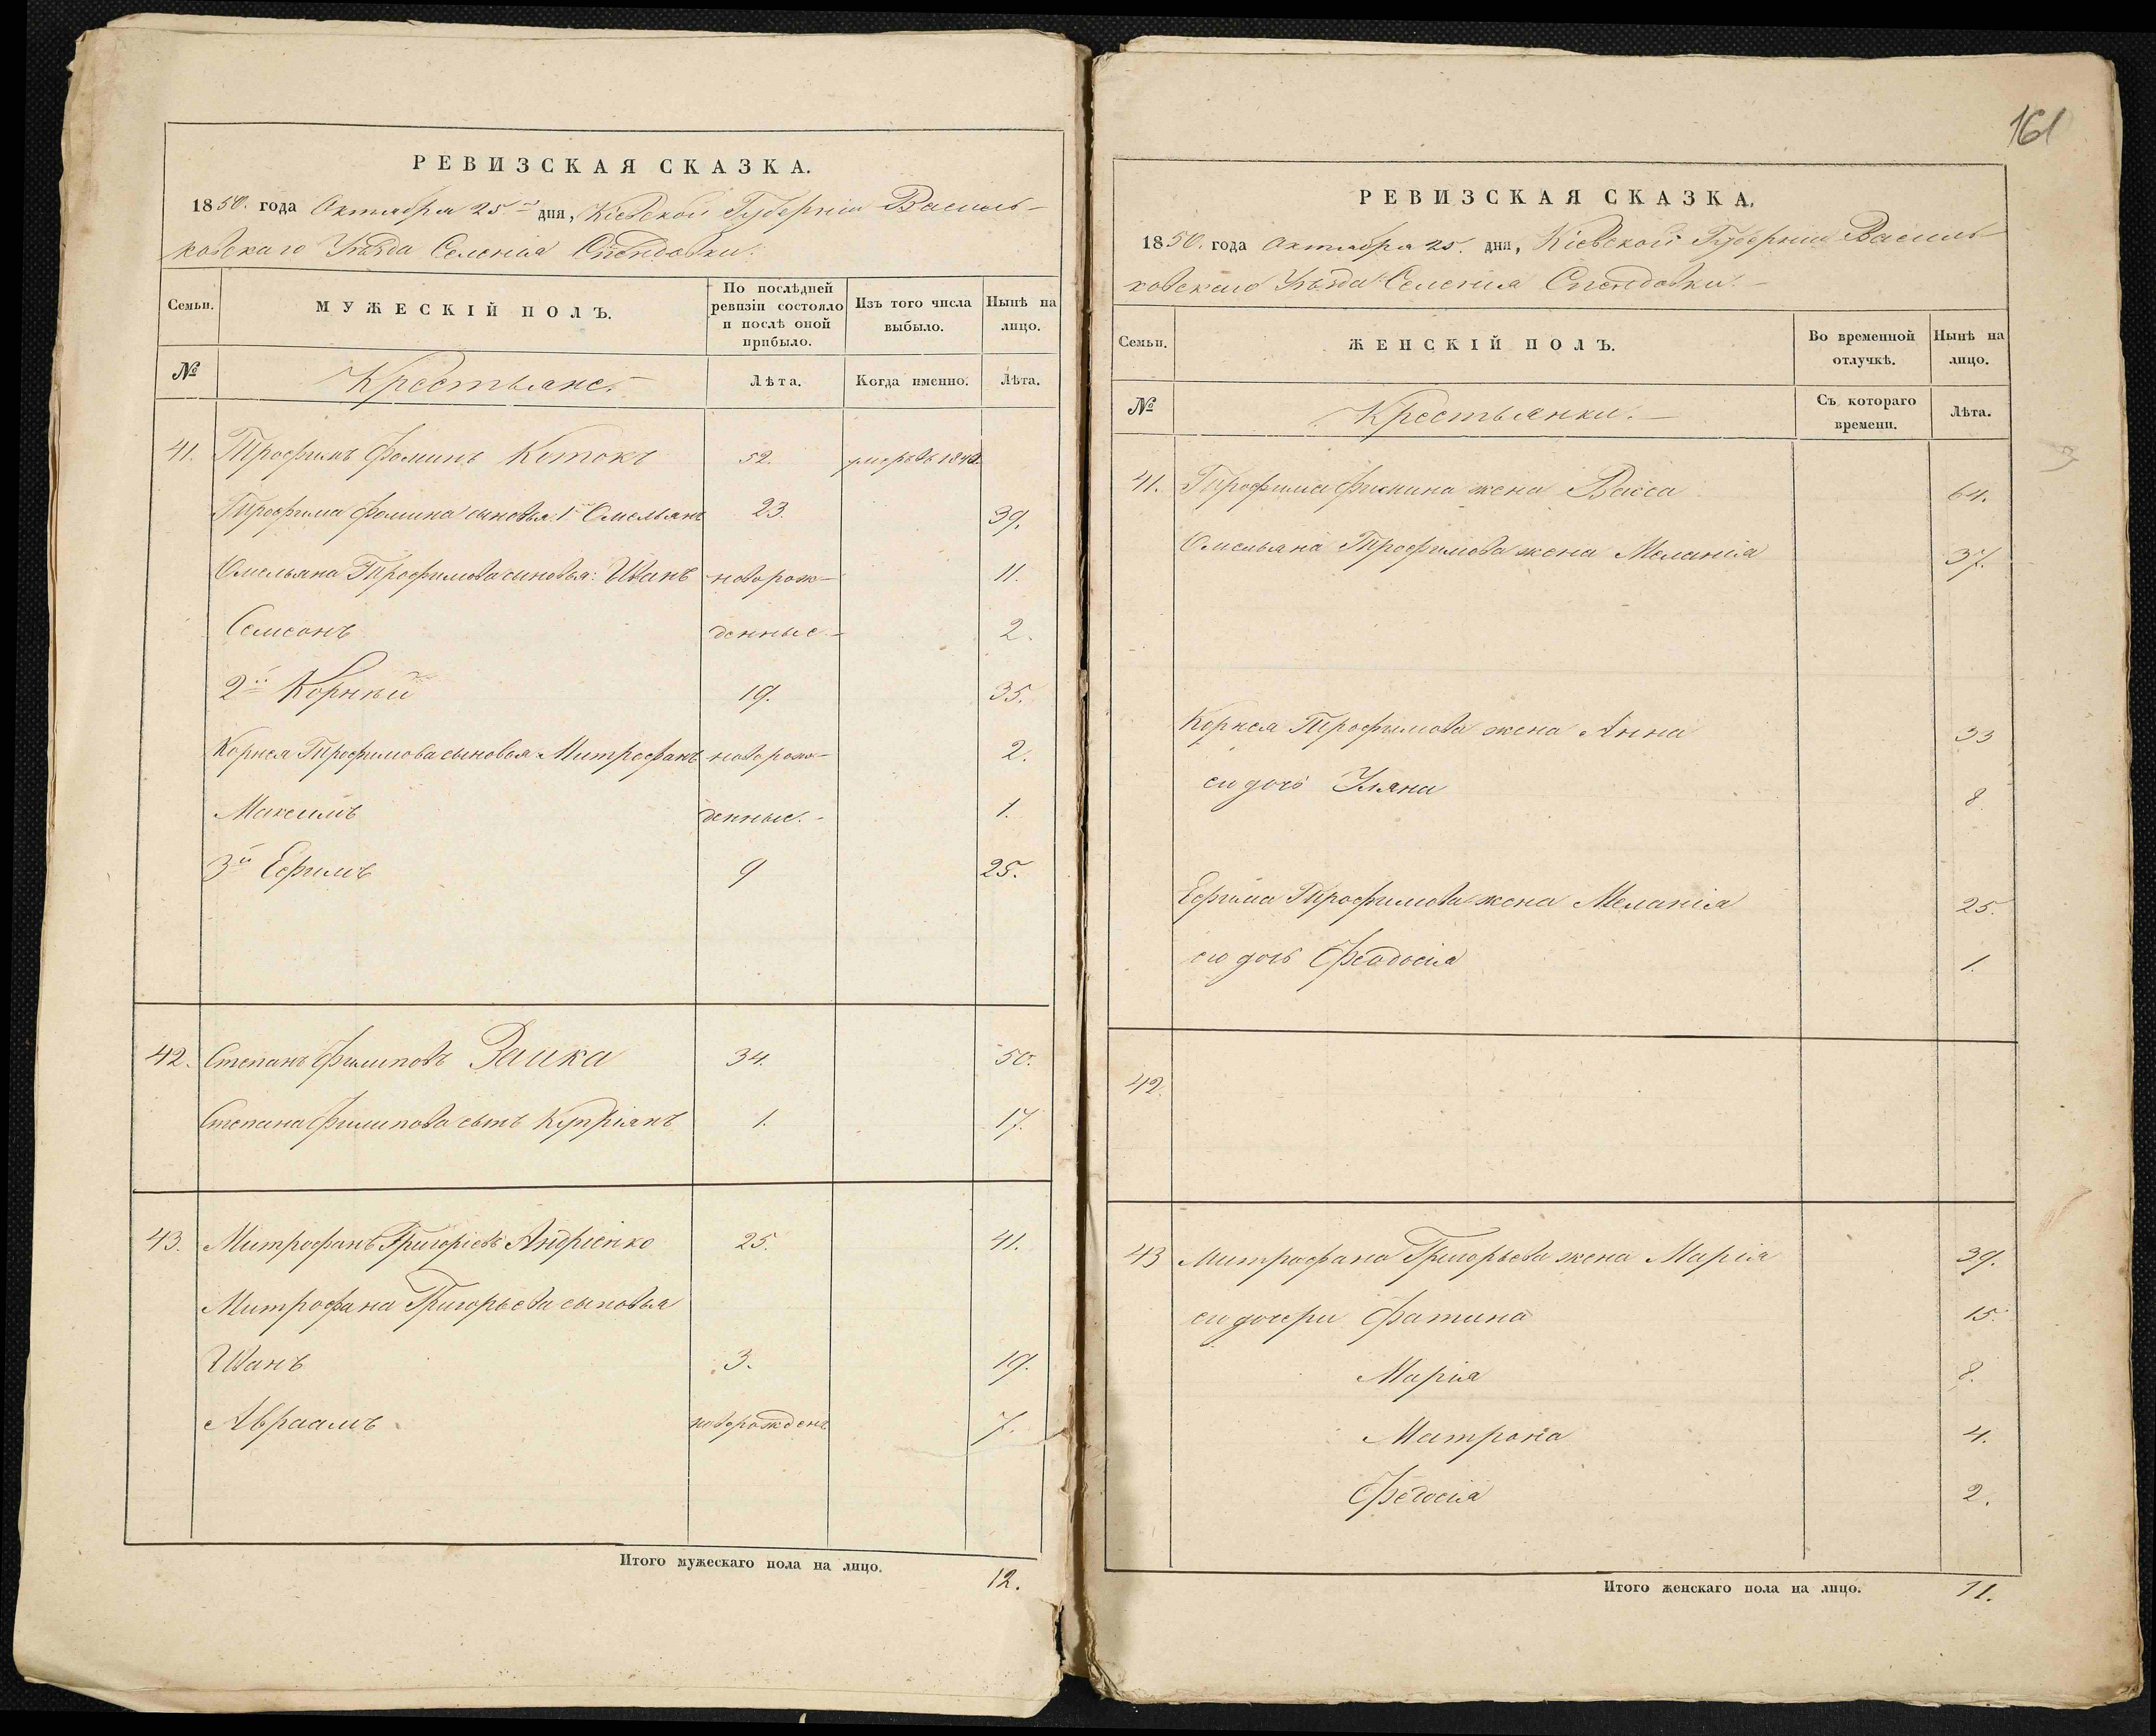 РЕВИЗСКАЯ СКАЗКА.
1850. года Октября 25.го дня, Кіевской Губерніи Василь-
ковскаго Уѣзда Селенія Спендовки.
Семьи.
МУЖЕСКІЙ ПОЛЪ.
По послѣдней ревизіи состояло и послѣ оной прибыло.
Изъ того числа выбыло.
Нынѣ на лицо.
№
Крестьяне.
Лѣта.
Когда именно.
Лѣта.
41. Трофимъ Фоминъ Коток 52. умеръ въ
Трофима Фомина сыновья: 1й Омельянъ 23. 39.
Омельяна Трофимова сыновья: Иванъ новорож- 11.
Семенъ денные 2.
2й Корнѣй 19. 35.
Корнея Трофимова сыновья Митрофанъ новорож- 2.
Максимъ денные. 1.
3й Ефимъ 9 25.
42. Степанъ Филиповъ Заика 34. 50.
Степана Филипова сынъ Купріянъ 1. 17.
43. Митрофанъ Григоріевъ Андріенко 25. 41.
Митрофана Григорьева сыновья
Иванъ 3. 19.
Авраамъ новорожденъ 7.
Итого мужескаго пола на лицо.
12.
161
РЕВИЗСКАЯ СКАЗКА.
1850. года Октября 25. дня, Кіевской Губерніи Василь-
ковскаго Уѣзда Селенія Спендовки.
Семьи.
ЖЕНСКІЙ ПОЛЪ.
Во временной отлучкѣ.
Нынѣ на лицо.
№
Крестьянки.
Съ котораго времени.
Лѣта.
41. Трофима Фомина жена Васса 64.
Омельяна Трофимова жена Меланія 37.
Корнея Трофимова жена Анна 33
его дочь Уляна 8.
Ефима Трофимова жена Меланія 25.
его дочь Феодосія 1.
42.
43 Митрофана Григорьева жена Марія 39.
его дочери Фатина 15.
Марія 8.
Матрона 4.
Федосія 2.
Итого женскаго пола на лицо.
11.